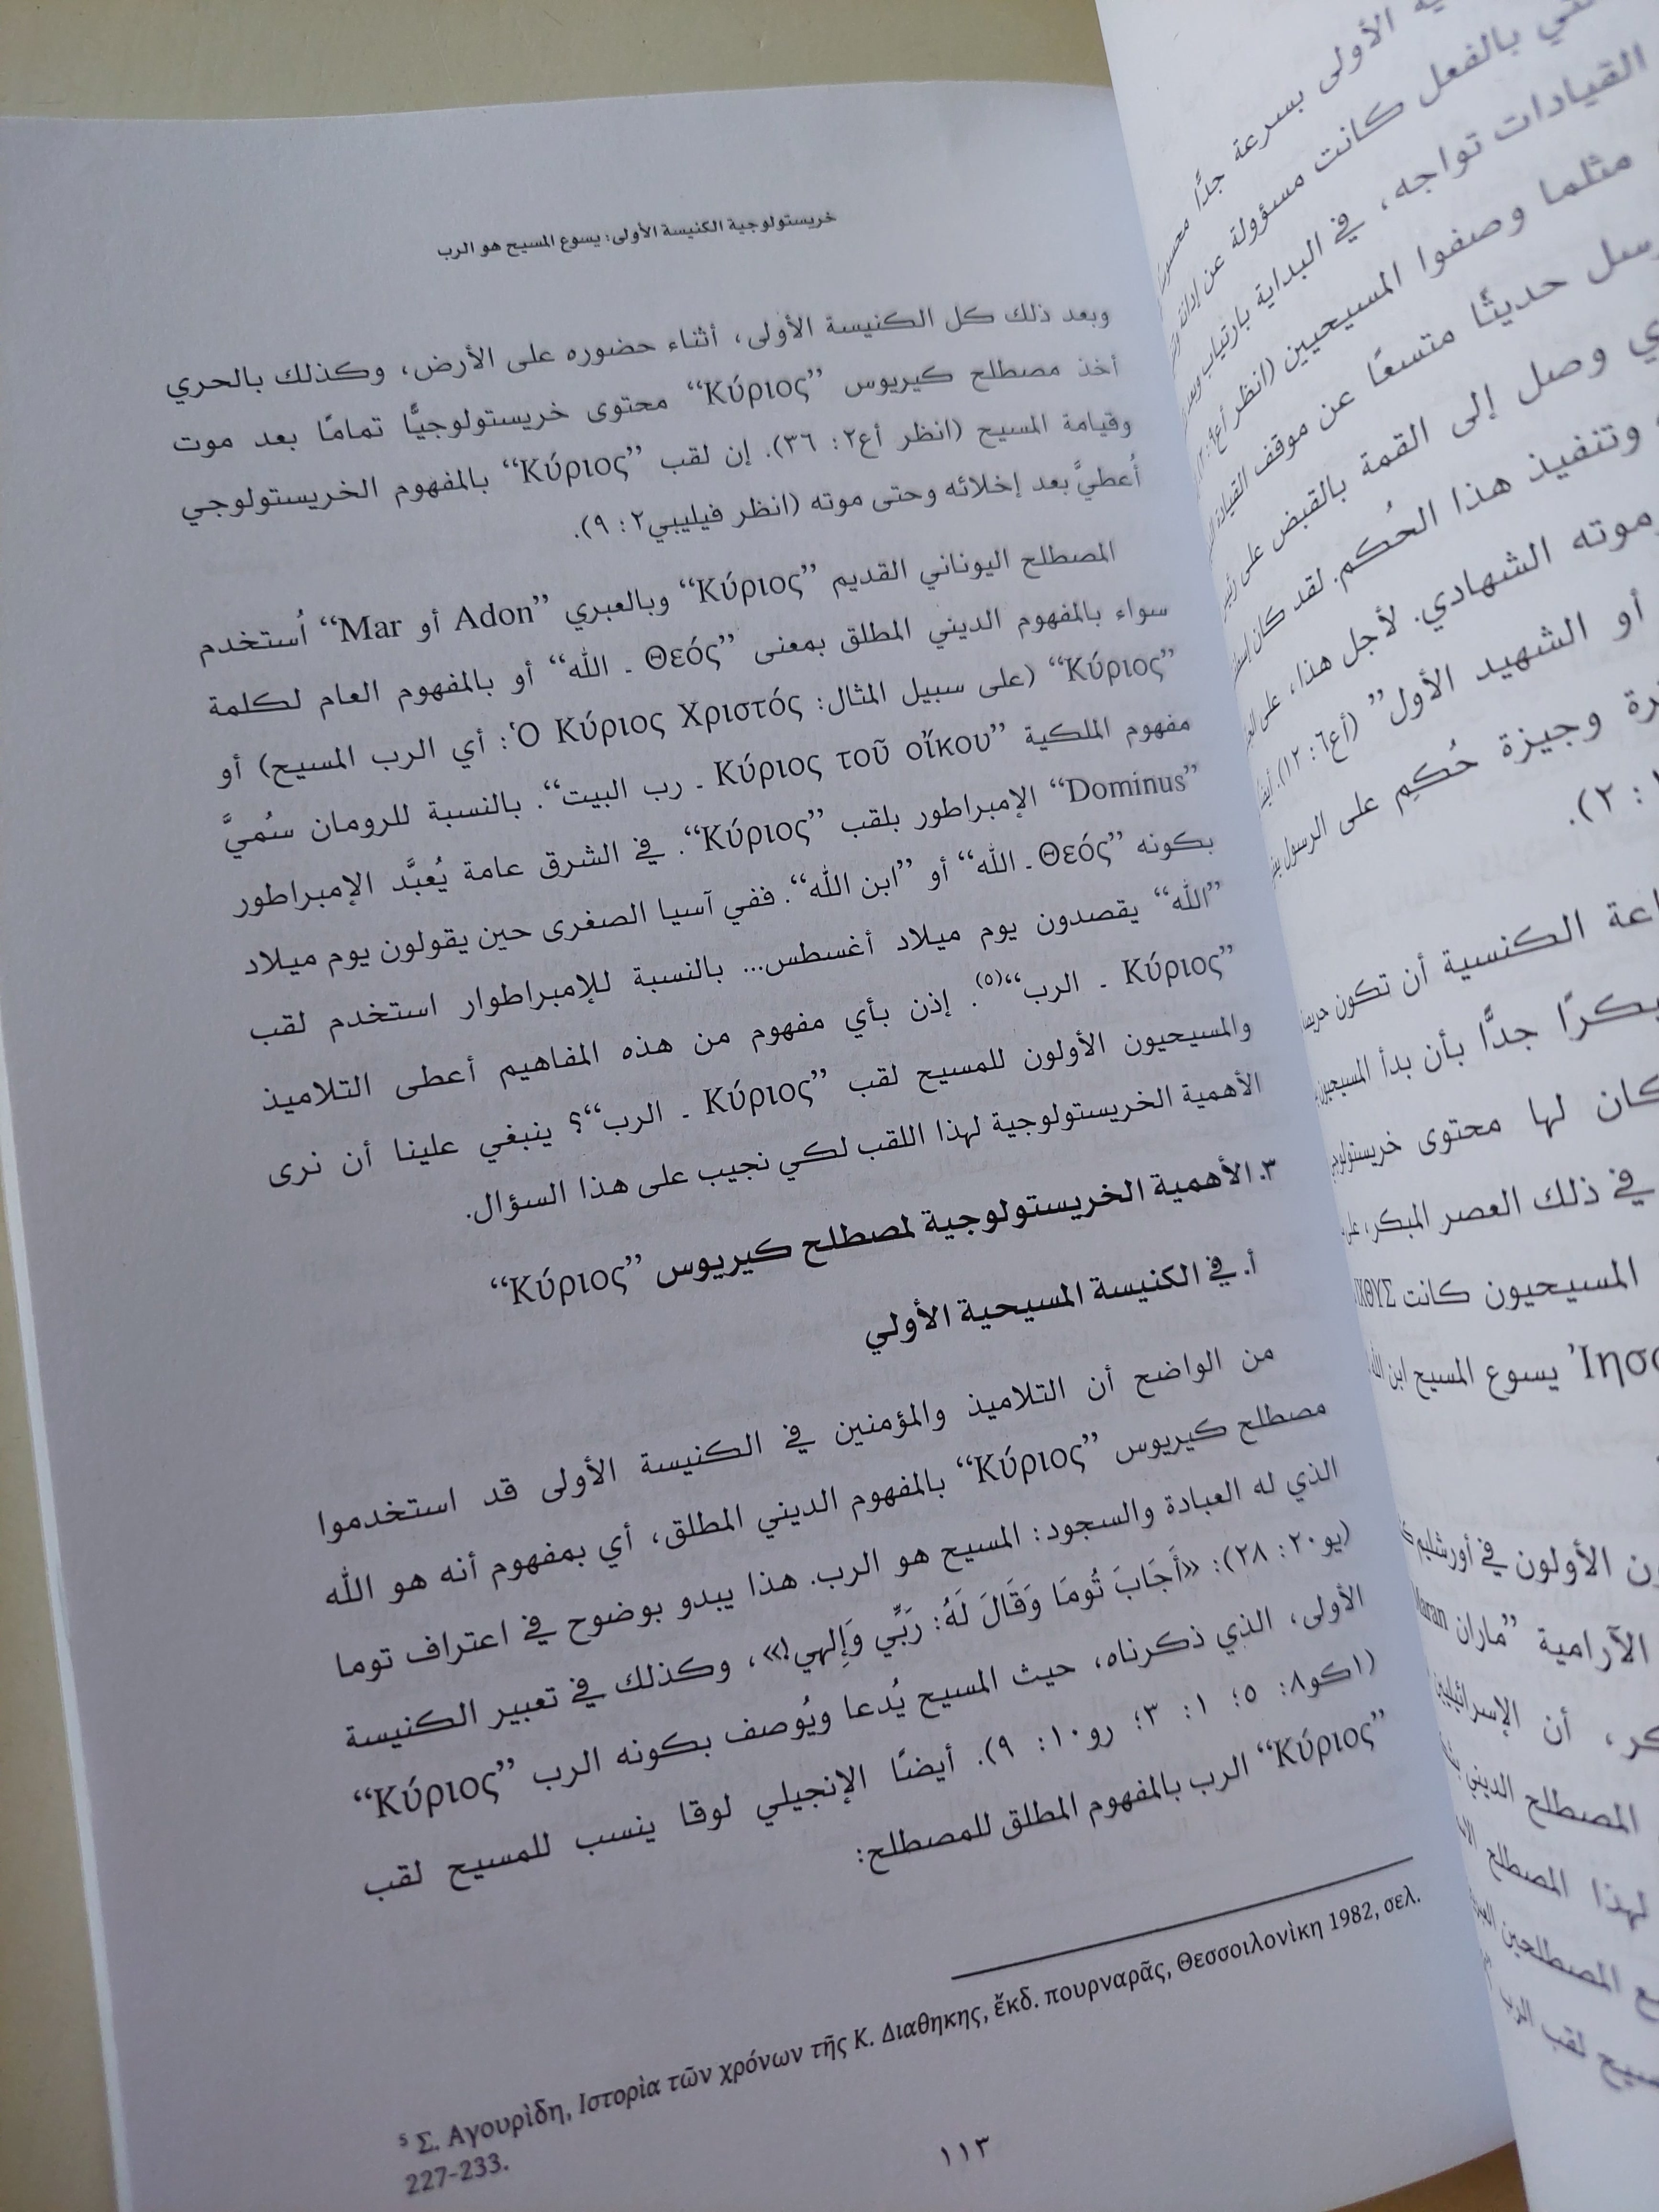 خريستولوجية الكنيسة الأولى: يسوع المسيح هو الرب
وبعد ذلك كل الكنيسة الأولى، أثناء حضوره على الأرض، وكذلك بالحري
أخذ مصطلح كيريوس ”Κύριος“ محتوى خريستولوجيًّا تمامًا بعد موت
وقيامة المسيح (انظر أع٢: ٣٦). إن لقب ”Κύριος“ بالمفهوم الخريستولوجي
أُعطيَّ بعد إخلائه وحتى موته (انظر فيليبي٢: ٩).
المصطلح اليوناني القديم ”Κύριος“ وبالعبري ”Adon أو Mar“ أُستخدم
سواء بالمفهوم الديني المطلق بمعنى ”Θεός ـ الله“ أو بالمفهوم العام لكلمة
”Κύριος“ (على سبيل المثال: Ὁ Κύριος Χριστός: أي الرب المسيح) أو
مفهوم الملكية ”Κύριος τοῦ οἴκου ـ رب البيت“. بالنسبة للرومان سُميَّ
”Dominus“ الإمبراطور بلقب ”Κύριος“. في الشرق عامة يُعبَّد الإمبراطور
بكونه ”Θεός ـ الله“ أو ”ابن الله“. ففي آسيا الصغرى حين يقولون يوم ميلاد
”الله“ يقصدون يوم ميلاد أغسطس... بالنسبة للإمبراطوار استخدم لقب
”Κύριος ـ الرب“(٥). إذن بأي مفهوم من هذه المفاهيم أعطى التلاميذ
والمسيحيون الأولون للمسيح لقب ”Κύριος ـ الرب“؟ ينبغي علينا أن نرى
الأهمية الخريستولوجية لهذا اللقب لكي نجيب على هذا السؤال.
٣. الأهمية الخريستولوجية لمصطلح كيريوس ”Κύριος“
أ. في الكنيسة المسيحية الأولي
من الواضح أن التلاميذ والمؤمنين في الكنيسة الأولى قد استخدموا
مصطلح كيريوس ”Κύριος“ بالمفهوم الديني المطلق، أي بمفهوم أنه هو الله
الذي له العبادة والسجود: المسيح هو الرب. هذا يبدو بوضوح في اعتراف توما
(يو٢٠: ٢٨): «أَجَابَ تُومَا وَقَالَ لَهُ: رَبِّي وَإِلهِي!»، وكذلك في تعبير الكنيسة
الأولى، الذي ذكرناه، حيث المسيح يُدعا ويُوصف بكونه الرب ”Κύριος“
(١كو٨: ٥؛ ١: ٣؛ رو١٠: ٩). أيضًا الإنجيلي لوقا ينسب للمسيح لقب
”Κύριος“ الرب بالمفهوم المطلق للمصطلح:
⁵ Σ. Αγουρὶδη, Ιστορὶα τῶν χρόνων τῆς Κ. Διαθηκης, ἔκδ. πουρναρᾶς, Θεσσοιλονὶκη 1982, σελ.
227-233.
١١٣
الأولى بسرعة جدًّا
بالفعل كانت مسؤولة عن
القيادات تواجه، في البداية بارتياب
مثلما وصفوا المسيحيين (انظر
حديثًا متسعًا عن موقف
وصل إلى القمة بالقبض على
وتنفيذ هذا الحُكم. لقد كان
موته الشهادي. لأجل هذا،
أو الشهيد الأول” (أع٦: ١٢).
وجيزة حُكِم على الرسول
: ٢).
الكنسية أن تكون
جدًّا بأن بدأ المسيحيون
كان لها محتوى
في ذلك العصر المبكر،
المسيحيون كانت
يسوع المسيح ابن
الأولون في أورشليم
الآرامية ”ماران
أن الإسرائيليين
المصطلح الديني
لهذا المصطلح
المصطلحين
لقب الرب